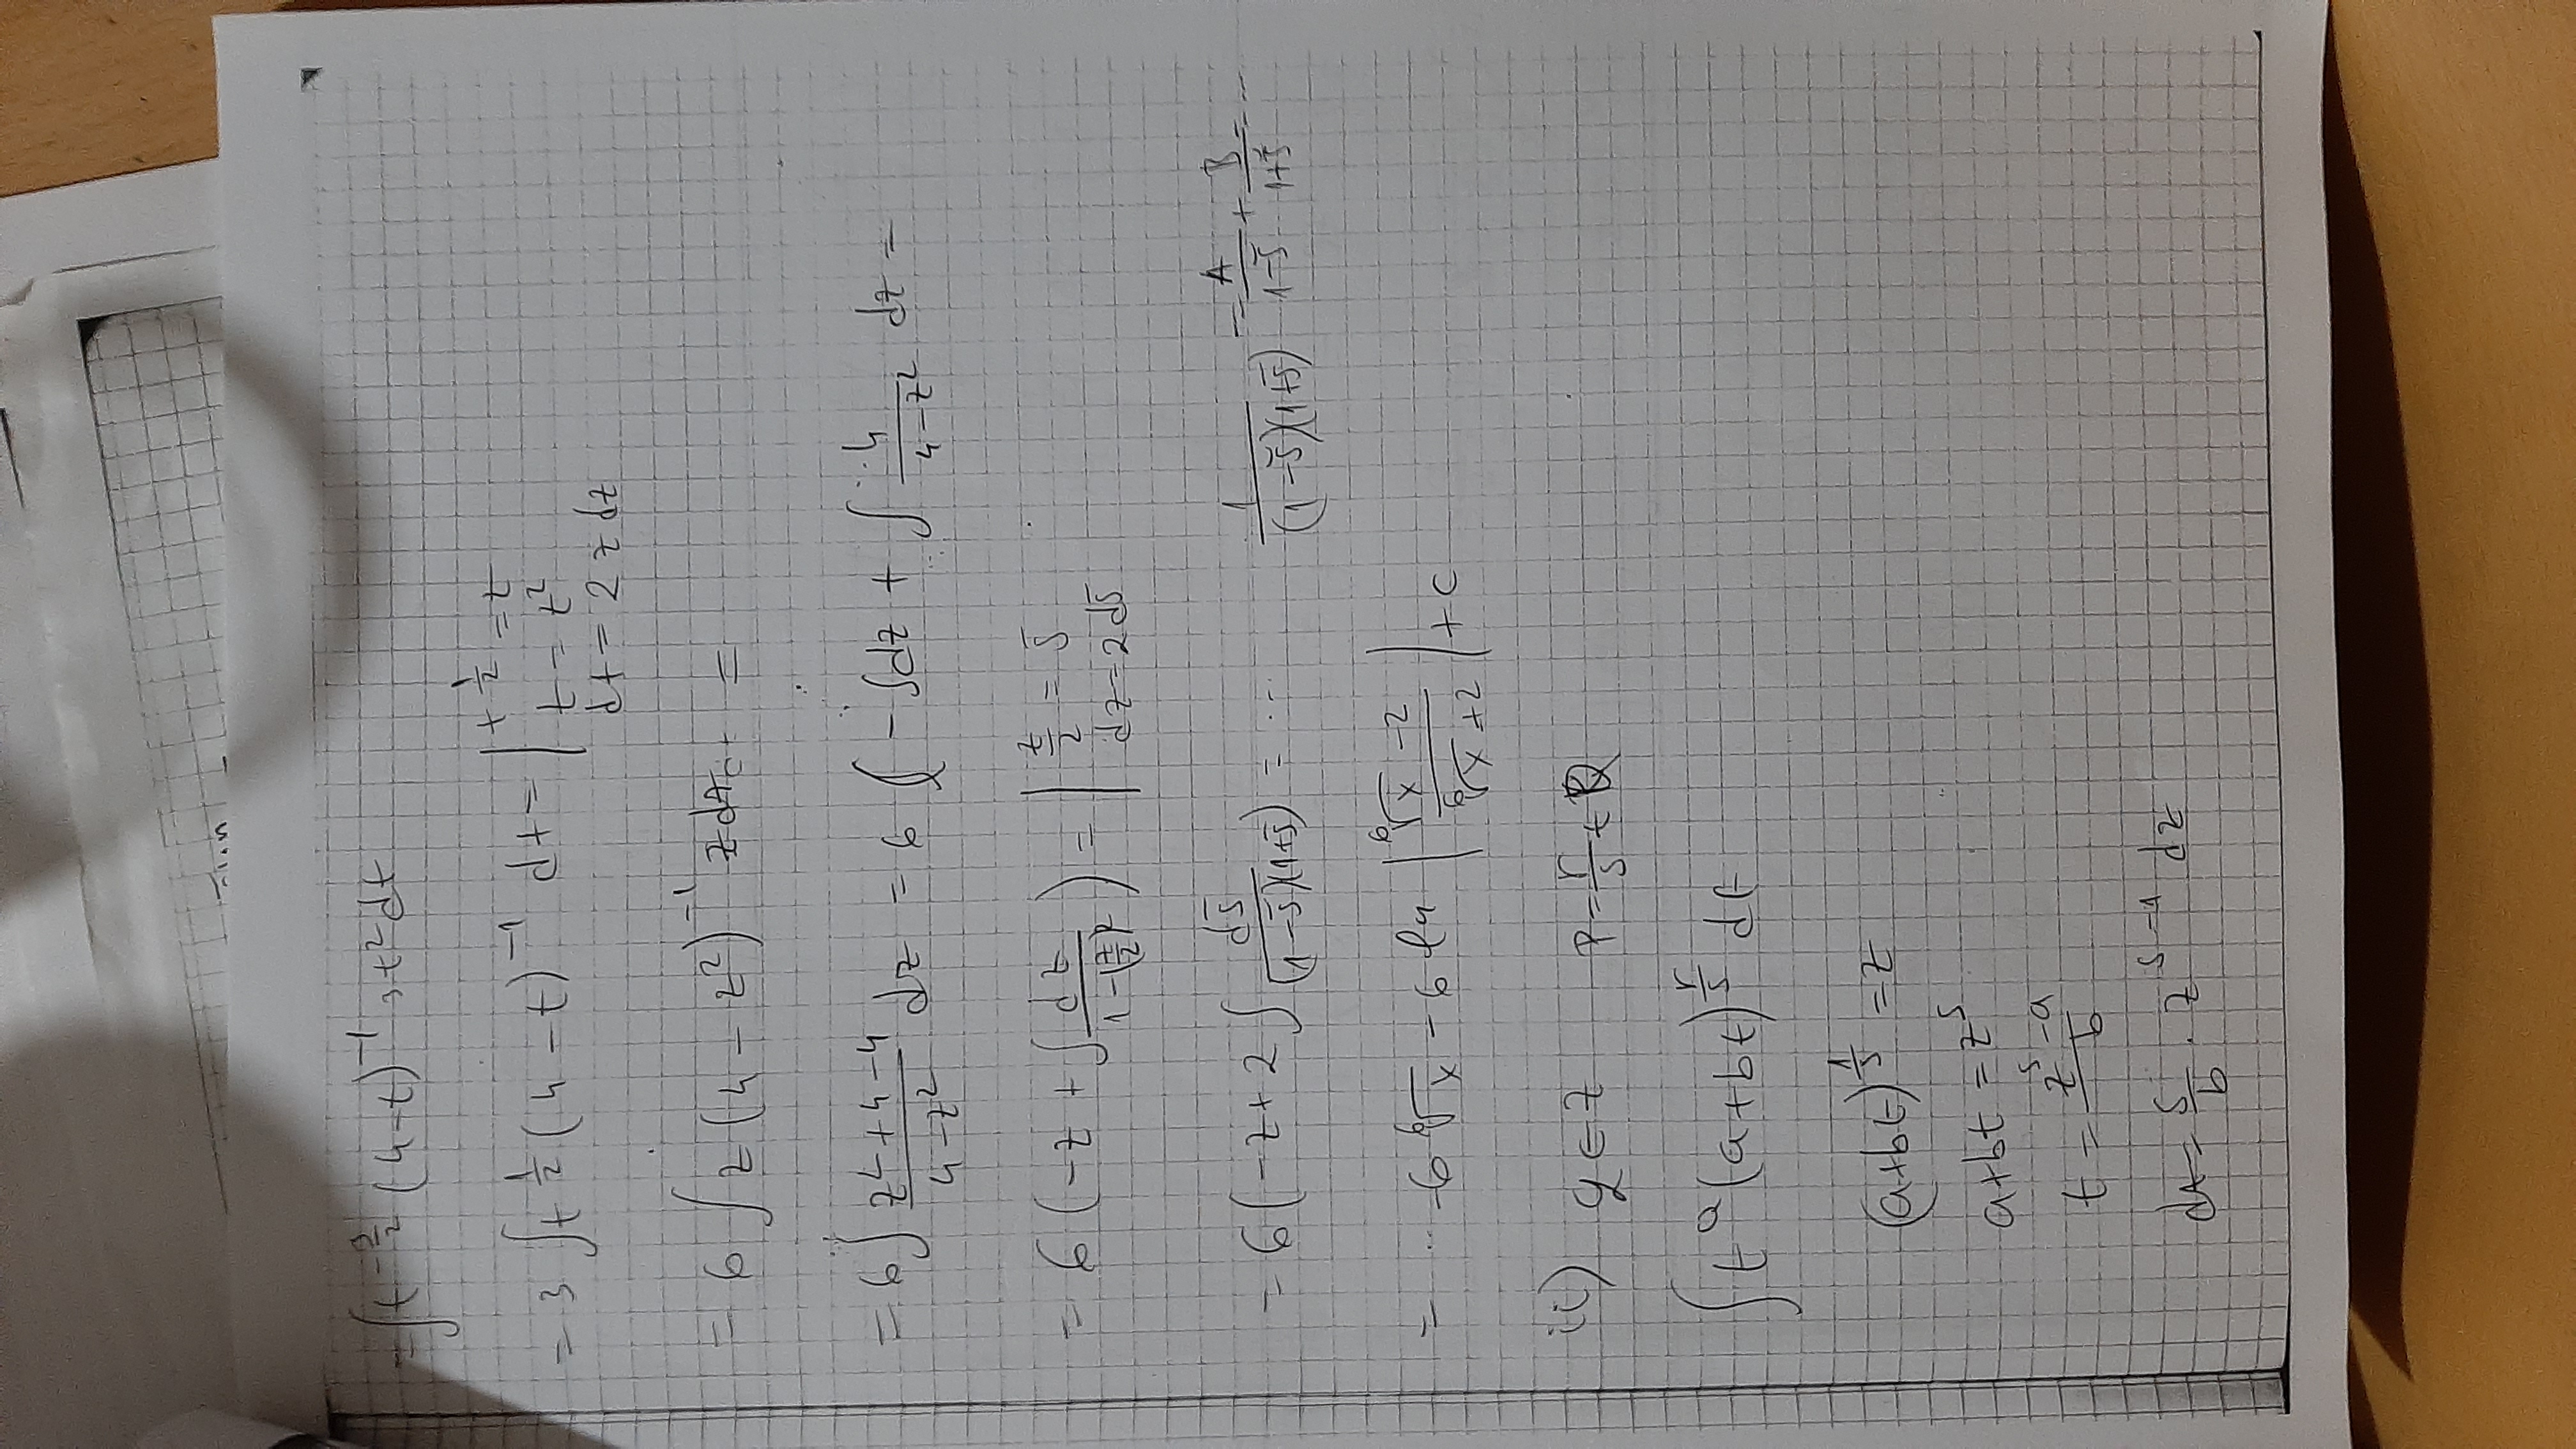 = ∫ t^{-3/2} (4-t)^{-1} 3t² dt
= 3 ∫ t^{1/2} (4-t)^{-1} dt = | t^{1/2} = z
t = z²
dt = 2z dz
= 6 ∫ z (4-z²)^{-1} z dz =
= 6 ∫ \frac{z²+4-4}{4-z²} dz = 6 ( -∫dz + ∫ \frac{4}{4-z²} dz =
= 6 (-z + ∫ \frac{dz}{1-(\frac{z}{2})²} ) = | \frac{z}{2} = s
dz = 2ds |
= 6 (-z + 2 ∫ \frac{ds}{(1-s)(1+s)} = ... \frac{1}{(1-s)(1+s)} = \frac{A}{1-s} + \frac{B}{1+s} = ...
= ... -6 \sqrt[6]{x} - 6 ln | \frac{\sqrt[6]{x} -2}{\sqrt[6]{x} +2} | + c
ii) q ∈ Z p = \frac{r}{s} ∈ Q
∫ t^q (a+bt)^{\frac{r}{s}} dt
(a+bt)^{\frac{1}{s}} = z
a+bt = z^s
t = \frac{z^s - a}{b}
dt = \frac{s}{b} · z^{s-1} dz